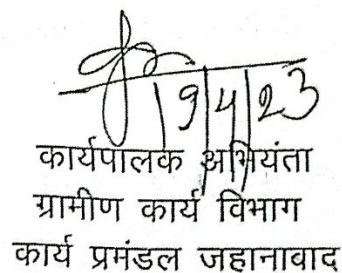 19/4/23
कार्यपालक अभियंता
ग्रामीण कार्य विभाग
कार्य प्रमंडल जहानावाद